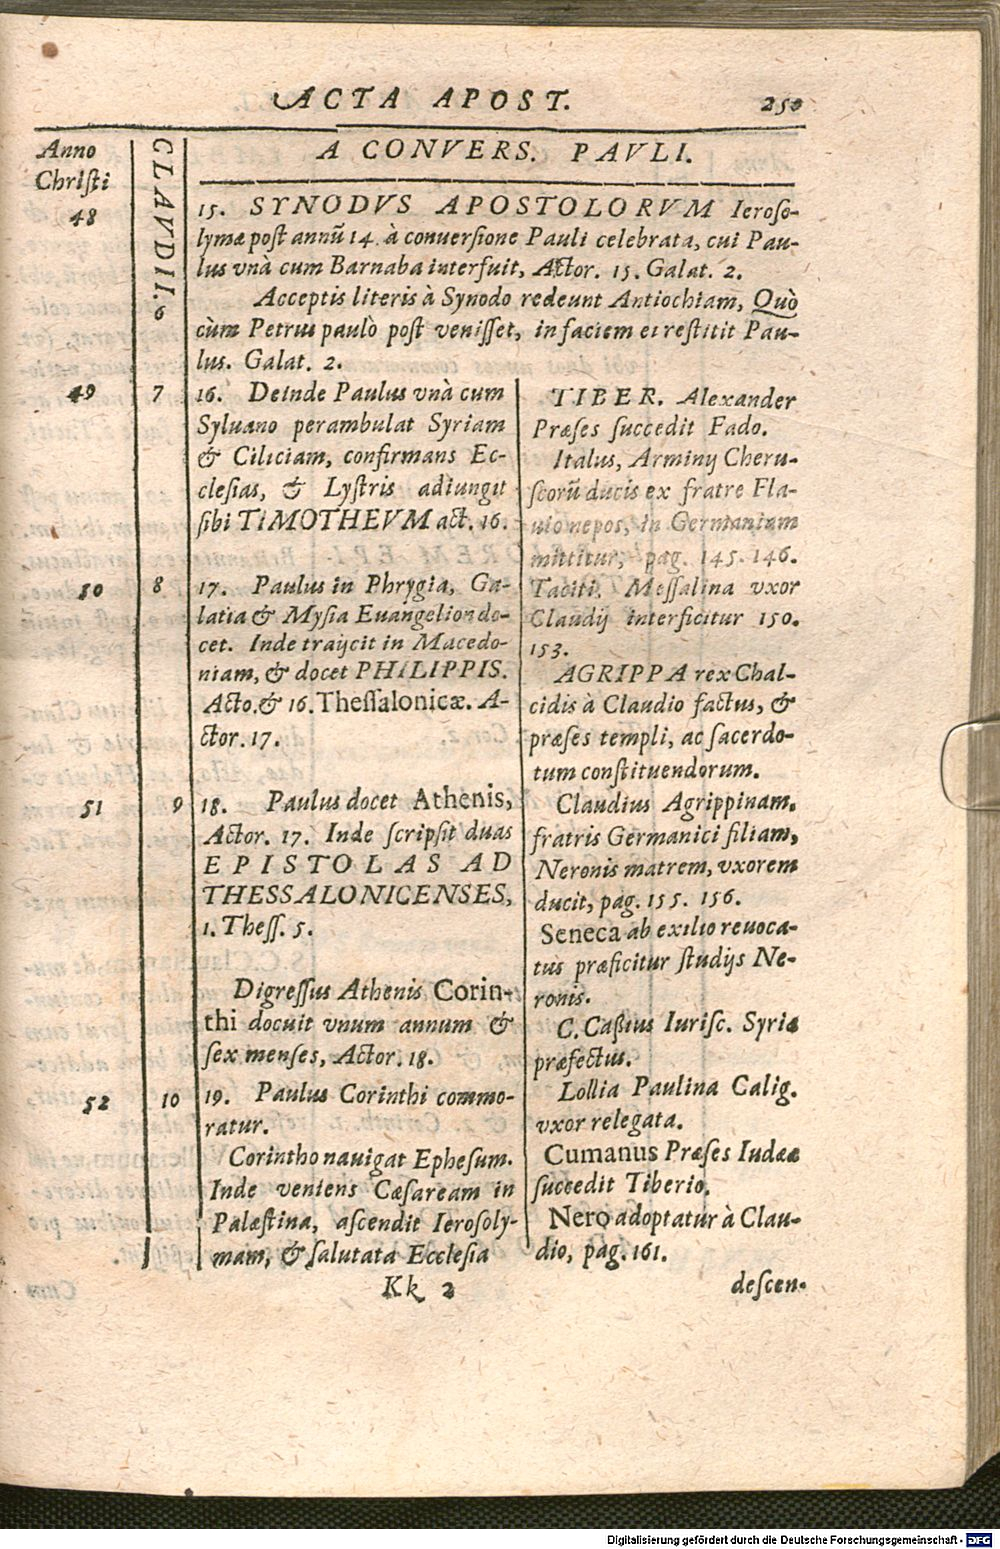 ACTA APOST. 250
Anno
Chriſti
CLAVDII.
A CONVERS. PAVLI.
48 6 15. SYNODVS APOSTOLORVM Ieroſo-
lymæ poſt annū 14. à conuerſione Pauli celebrata, cui Pau-
lus vnà cum Barnaba interfuit, Actor. 15. Galat. 2.
Acceptis literis à Synodo redeunt Antiochiam, Quò
cùm Petrus paulò poſt veniſſet, in faciem ei reſtitit Pau-
lus. Galat. 2.
49 7 16. Deinde Paulus vnà cum
Syluano perambulat Syriam
& Ciliciam, confirmans Ec-
cleſias, & Lyſtris adiungit
ſibi TIMOTHEVM act. 16.
50 8 17. Paulus in Phrygia, Ga-
latia & Myſia Euangelion do-
cet. Inde traijcit in Macedo-
niam, & docet PHILIPPIS.
Acto. & 16. Theſſalonicæ. A-
ctor. 17.
51 9 18. Paulus docet Athenis,
Actor. 17. Inde ſcripſit duas
EPISTOLAS AD
THESSALONICENSES,
1. Theſſ. 5.
Digreſſus Athenis Corin-
thi docuit vnum annum &
ſex menſes, Actor. 18.
52 10 19. Paulus Corinthi commo-
ratur.
Corintho nauigat Epheſum.
Inde veniens Cæſaream in
Palæſtina, aſcendit Ieroſoly-
mam, & ſalutata Eccleſia
TIBER. Alexander
Præſes ſuccedit Fado.
Italus, Arminij Cheru-
ſcorū ducis ex fratre Fla-
uio nepos, in Germaniam
mittitur, pag. 145. 146.
Taciti. Meſſalina vxor
Claudij interficitur 150.
153.
AGRIPPA rex Chal-
cidis à Claudio factus, &
præſes templi, ac ſacerdo-
tum conſtituendorum.
Claudius Agrippinam,
fratris Germanici filiam,
Neronis matrem, vxorem
ducit, pag. 155. 156.
Seneca ab exilio reuoca-
tus præficitur ſtudijs Ne-
ronis.
C. Caßius Iuriſc. Syriæ
præfectus.
Lollia Paulina Calig.
vxor relegata.
Cumanus Præſes Iudææ
ſuccedit Tiberio.
Nero adoptatur à Clau-
dio, pag. 161.
Kk 2 deſcen-
Digitalisierung gefördert durch die Deutsche Forschungsgemeinschaft - DFG